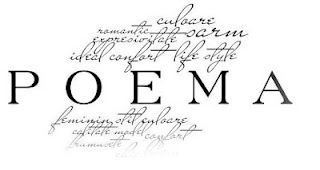 culoare
romantic sarm
expresivitate
ideal confort life style
POEMA
feminin stil culoare
calitate model confort
frumusete